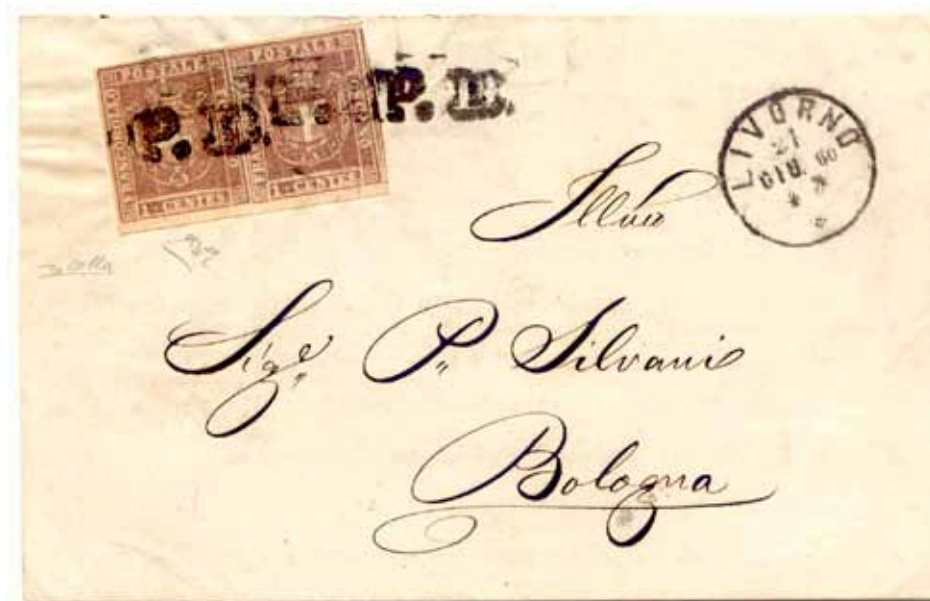 POSTALE POSTALE
FRANCOBOLLO
1 CENTS 1 CENTS
P. D. P. D.
LIVORNO
21
GIU. 60
Sig.e P. Silvani
Bologna